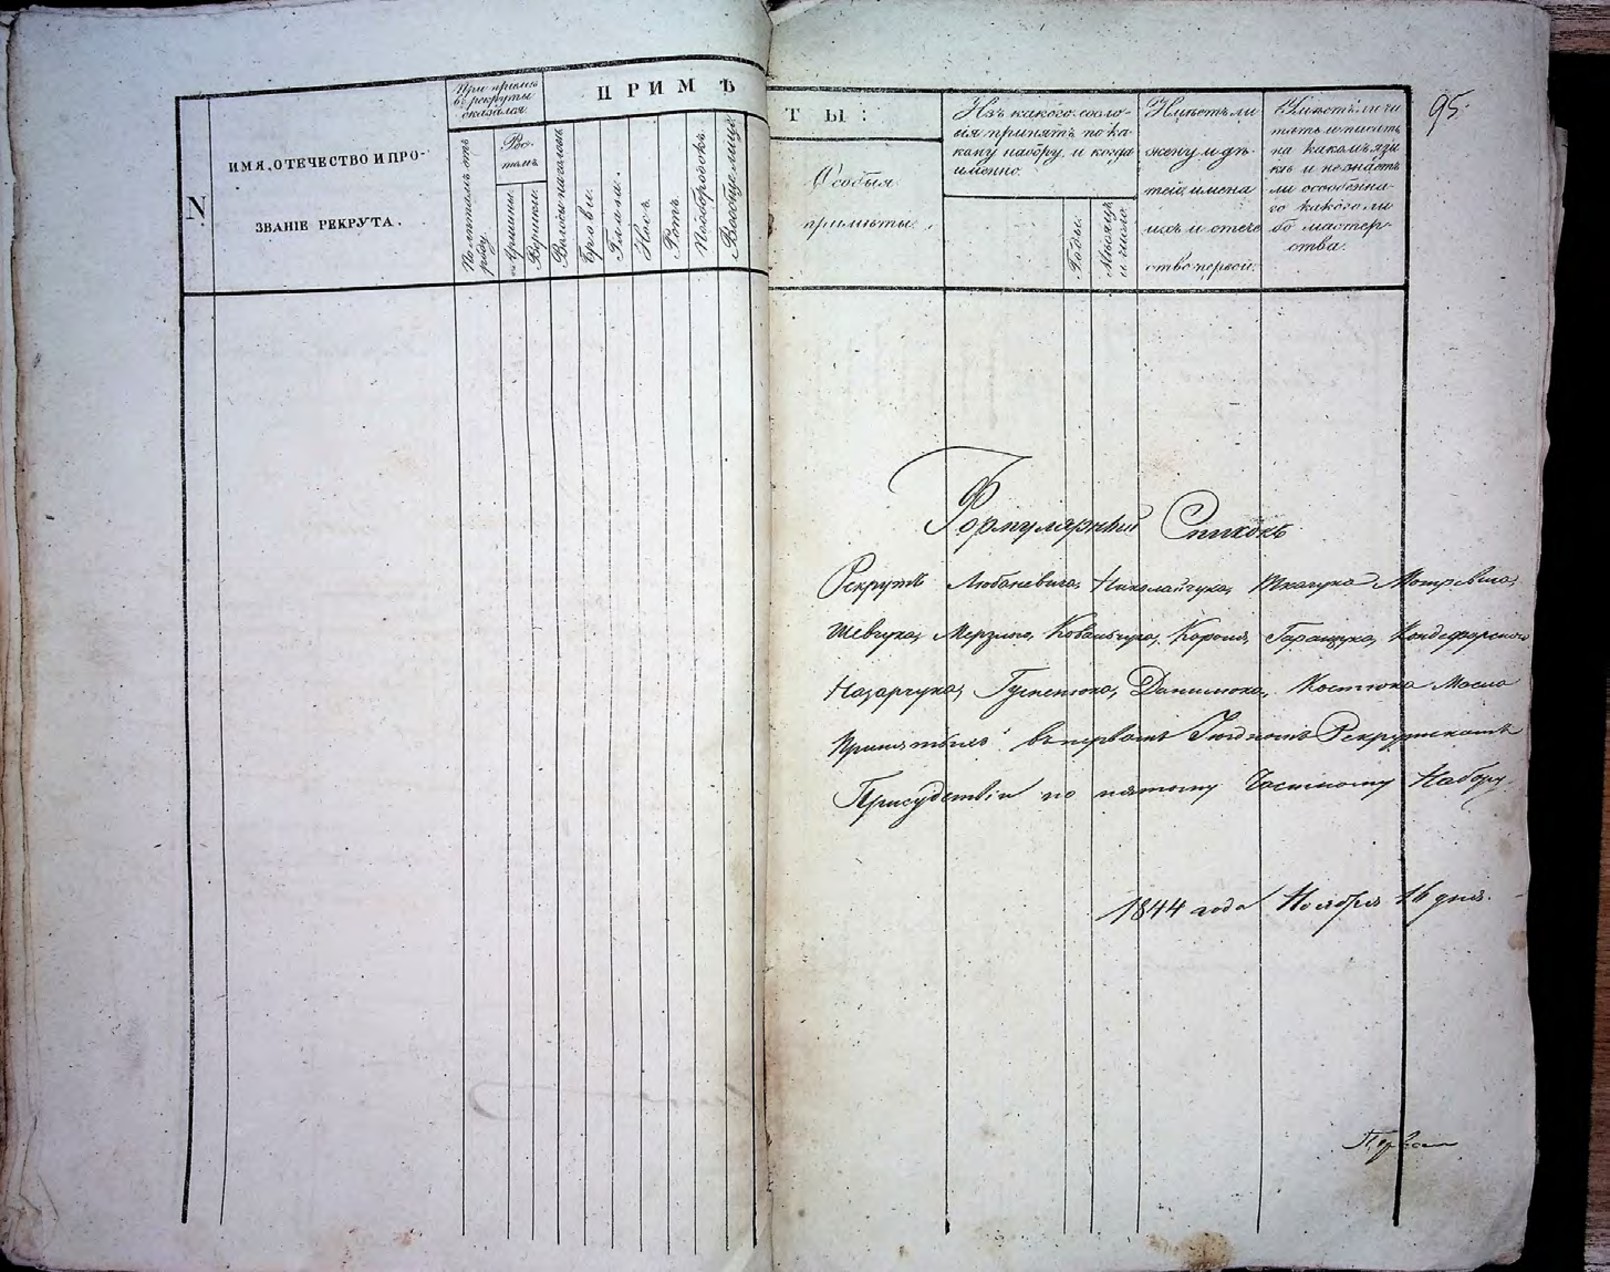 95.
N
ИМЯ, ОТЕЧЕСТВО И ПРО-
ЗВАНІЕ РЕКРУТА.
При пріемѣ
въ рекруты
оказался
По лѣтамъ отъ
роду.
Ро-
стомъ
Аршины.
Вершки.
ПРИМѢ
Волосы на головѣ
Брови.
Глаза.
Носъ.
Ротъ.
Подбородокъ.
Вообще лице.
ТЫ:
Особыя
примѣты.
Изъ какого сосло-
вія принятъ по ка-
кому набору и когда
именно.
Годы.
Мѣсяцъ
и число.
Имѣетъ ли
жену и дѣ-
тей, имена
ихъ и отече
ство первой.
Умѣетъ ли чи
тать и писать
на какомъ язы
кѣ и не знаетъ
ли особенна-
го какого ли
бо мастер-
ства.
Формулярный Списокъ
Рекрутъ Любаневича, Николайчука, Ткачука
Шевчука, Ковальчука, Короля, Гаращука,
Назарчука, Данилюка, Костюка Масла
Принятыхъ въ первомъ Рекрутскомъ
Присудствіи по пятому Частному Набору.
1844 года Ноября 16 дня.